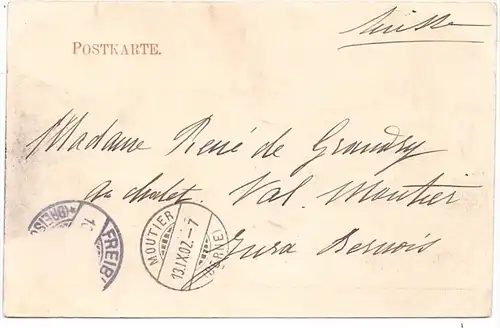 Suisse
POSTKARTE.
Madame René de Grandry
au chalet. Val. Moutier
Jura Bernois
MOUTIER
13.IX.02.-7
(BERNE)
FREIB
(BREISG